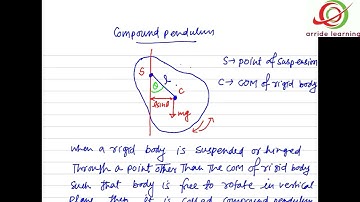 arride learning
Compound pendulum
S → point of suspension
C → COM of rigid body
S
l
θ
C
lsinθ
mg
when a rigid body is suspended or hinged
Through a point other Than the COM of rigid body
Such that body is free to rotate in vertical
Plane then It is called compound pendulum